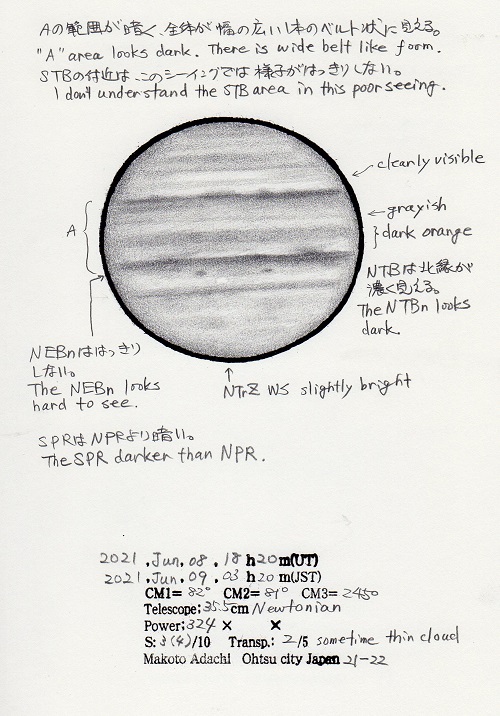 Aの範囲が暗く、全体が幅の広い1本のベルト状に見える。
"A" area looks dark. There is wide belt like form.
STBの付近は、このシーイングでは様子がはっきりしない。
I don't understand the STB area in this poor seeing.
cleanly visible
grayish
dark orange
A
NTBは北縁が
濃く見える。
The NTBn looks
dark.
NEBnははっきり
しない。
The NEBn looks
hard to see.
NTrZ WS slightly bright
SPRはNPRより暗い。
The SPR darker than NPR.
2021 . Jun. 08 . 18 h 20 m(UT)
2021 . Jun. 09 . 03 h 20 m(JST)
CM1= 82° CM2= 81° CM3= 245°
Telescope; 35.5cm Newtonian
Power; 324 × ×
S: 3(4)/10 Transp.: 2/5 sometime thin cloud
Makoto Adachi Ohtsu city Japan 21-22